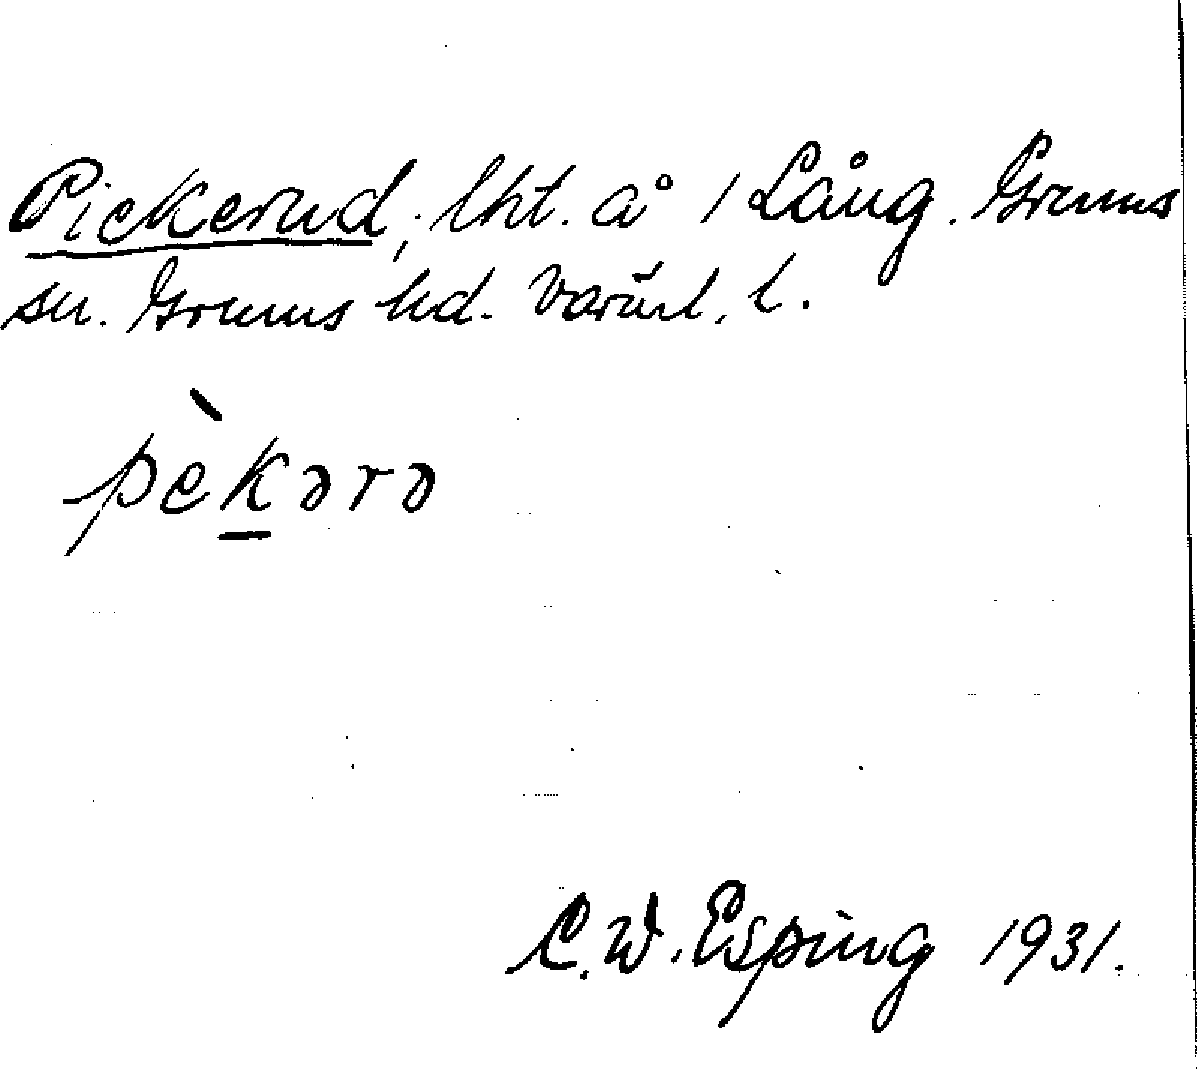 Pickerud, lht. å 1 Lång. Grums
sn. Grums hd. Värml. l.
pèkərə
C. W. Esping 1931.